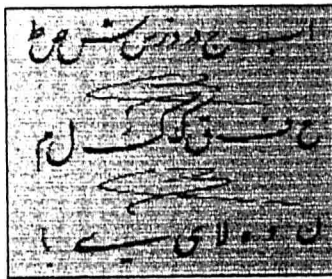 ا ب ج د ر س ش ص ط
ع ف ق ک ل م
ن و ہ لا ی ے با